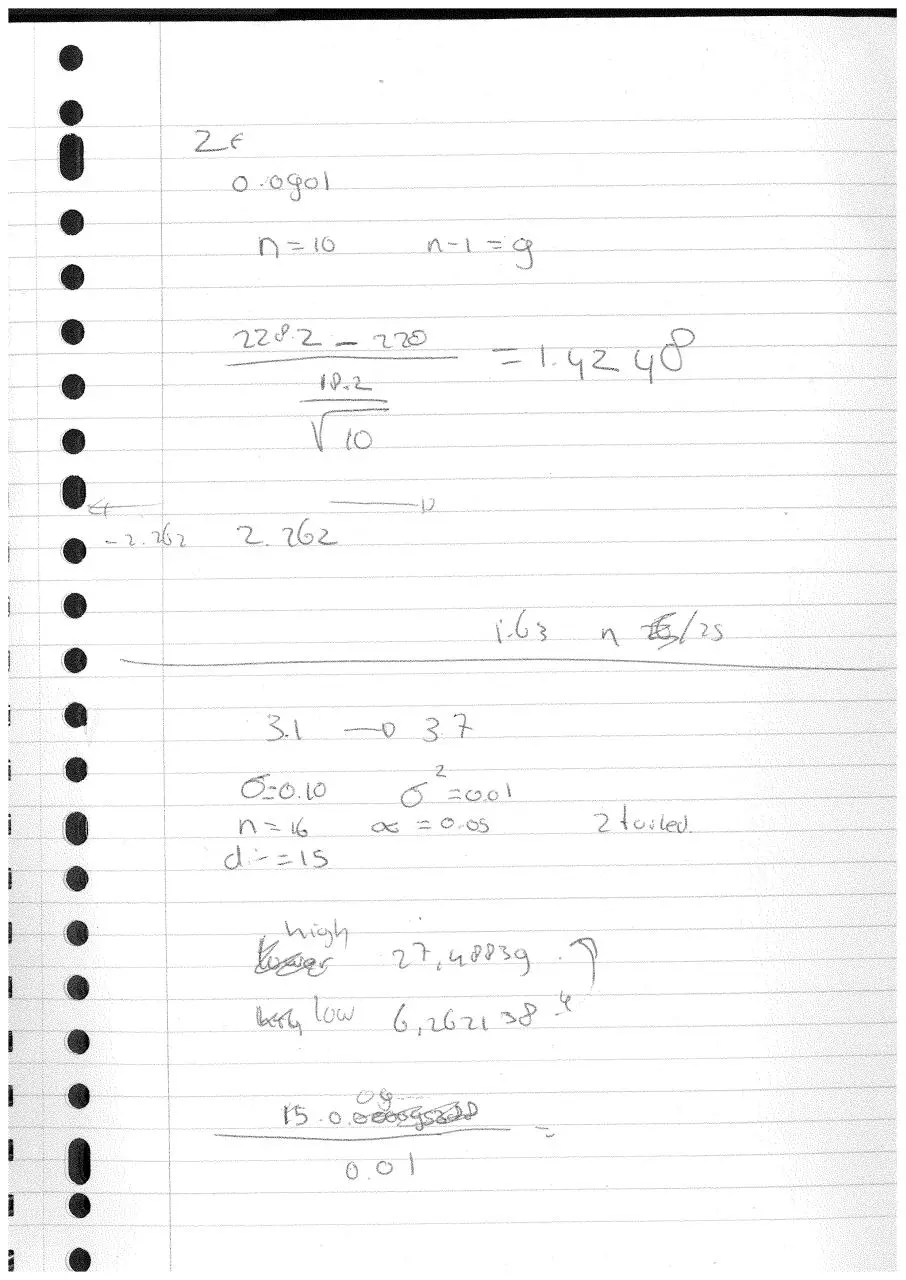 0.0901
n=10 n-1=9
228.2 - 220
18.2
√10
= 1.4248
-2.262 2.262
1.63 n /25
3.1 → 3.7
σ=0.10 σ²=0.01
n=16 α=0.05 2 tailed.
d =15
high 27,48839
low 6,262138
15·0.09
0.01
=